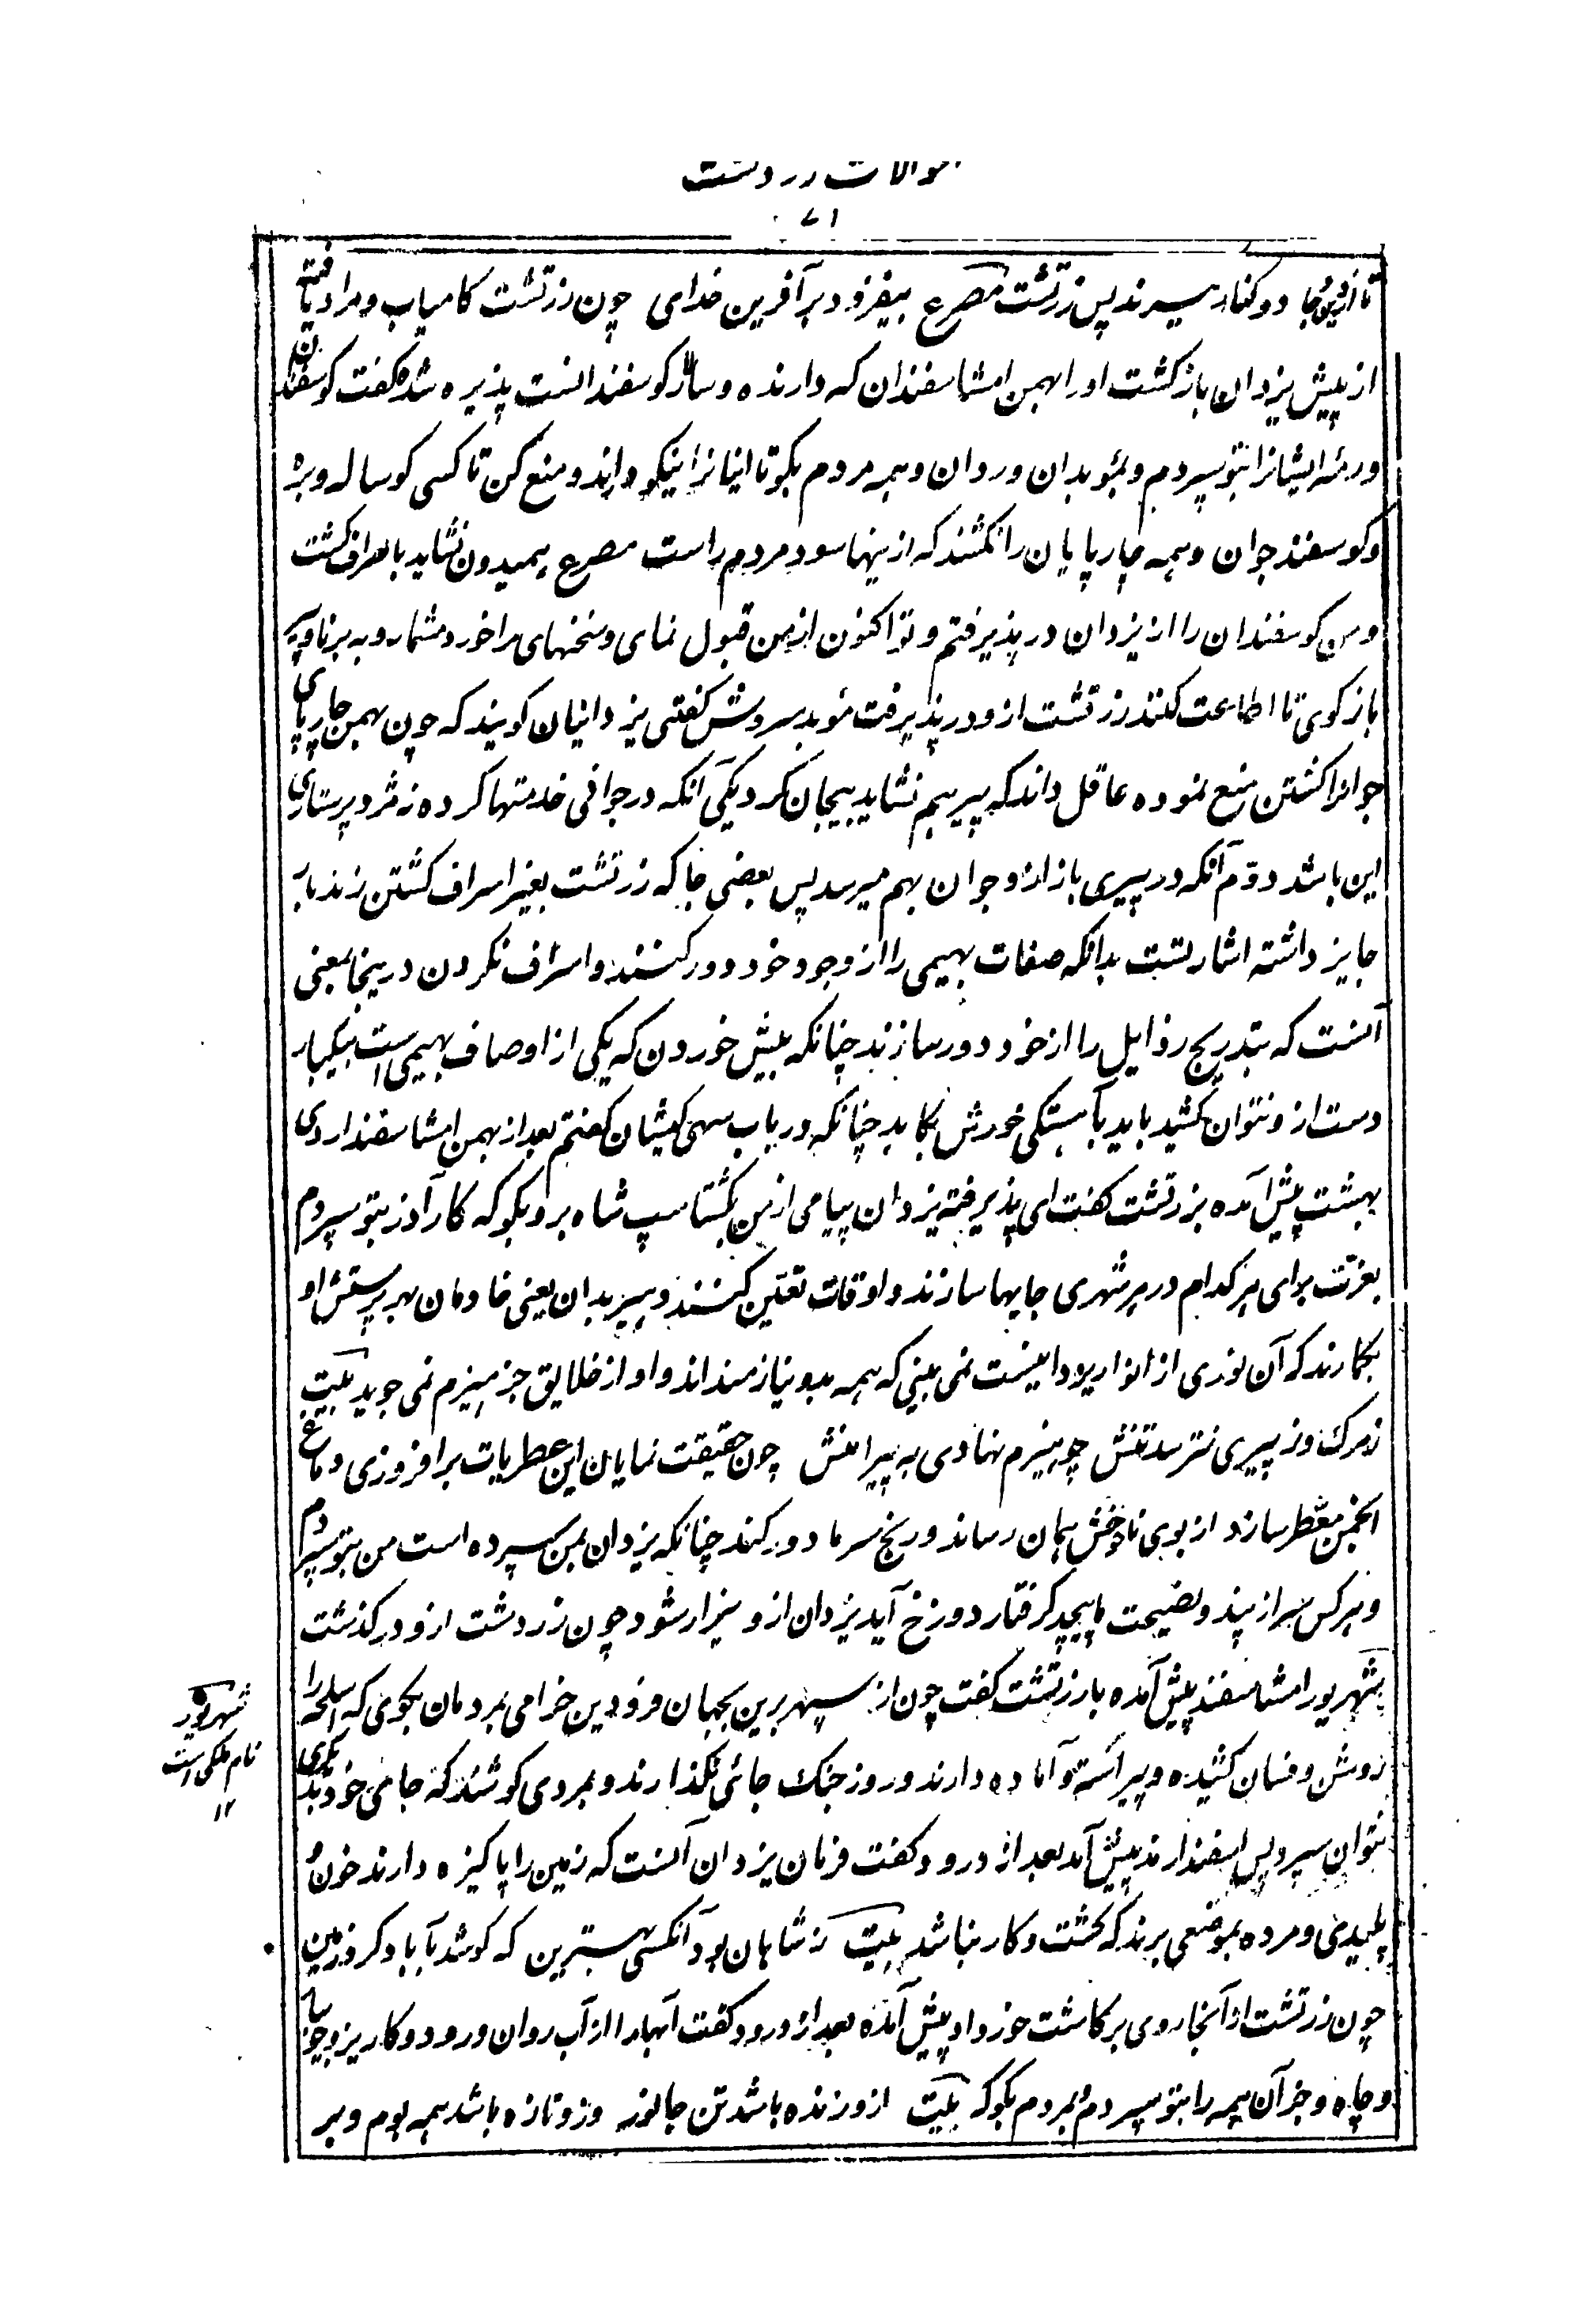 سوالات زردشت
۷۱
تا از دیو جادو کناره سپرند پس زرتشت مصرع بیفزود بر آفرین خدای چون زرتشت کامیاب و مراد یافته
از پیش یزدان بازگشت او را بهمن امشاسفندان که دارنده و سالار کوسفندانست پذیره شد گفت کوسفندان
و رمه ایشانرا بتو سپردم و بموبدان و ردان و همه مردم بگو تا اینانرا نیکو دارند و منع کن تا کسی کوساله و بره
و کوسفند جوان و همه چارپایان را نکشند که ازینها سود مردم راست مصرع همیدون نشاید باسراف کشت
و من کوسفندان را از یزدان در پذیرفتم و تو اکنون از من قبول نمای و سخنهای مرا خورد مشمار و به برنا و پیر
باز کوی تا اطاعت کنند زرتشت ازو در پذیرفت موبد سروش گفتی یزدانیان کویند که چون بهمن چارپای
جوانرا کشتن منع نموده عاقل داند که پیر هم نشاید بیجان کرد یکی آنکه در جوانی خدمتها کرده نه مزد پرستاری
این باشد دوم آنکه در پیری باز ازو جوان بهم میرسد پس بعضی جا که زرتشت بغیر اسراف کشتن زندبار
جایز داشته اشارتست بدانکه صفات بهیمی را از وجود خود دور کنند و اسراف نکردن درینجا بمعنی
آنست که بتدریج رذایل را از خود دور سازند چنانکه بیش خوردن که یکی از اوصاف بهیمی است بیکبار
دست ازو نتوان کشید باید بآهستگی خورش بکاهد چنانکه در باب سهی کیشان گفتم بعد از بهمن امشاسفند اردی
بهشت پیش آمده بزرتشت گفت ای پذیرفته یزدان پیامی از من بگشتاسپ شاه بر و بگو که کار آذر بتو سپردم
بعزت برای هر کدام در هر شهری جایها سازند و اوقات تعین کنند و هیربدان یعنی خادمان بهر پرستش او
بکارند که آن نوری از انوار یزدانیست نمی بینی که همه بدو نیازمنداند و او از خلایق جز هیزم نمی جوید بیت
ز مرک و ز پیری نترسد تنش چو هیزم نهادی به پیرامنش چون حقیقت نمایان این عطریات بر افروزی دماغ
انجمن معطر سازد از بوی ناخوش امان رساند و رنج سرما دور کند چنانکه یزدان بمن سپرده است من بتو سپردم
و هر کس سر از پند و نصیحت ما پیچد گرفتار دوزخ آید یزدان ازو بیزار شود چون زردشت ازو در گذشت
شهریور امشاسفند پیش آمده با زرتشت گفت چون از سپهر برین بجهان فرودین خرامی بمردمان بگوی که اسلحه را
روشن و فسان کشیده و پیراسته و آماده دارند و روز جنک جائی نگذارند و بمردی کوشند که جای خود بدیگری
نتوان سپرد پس اسفندارمذ پیش آمد بعد از درود گفت فرمان یزدان آنست که زمین را پاکیزه دارند خون و
پلیدی و مرده بموضعی برند که کشت و کار نباشد بیت ز شاهان بود آنکسی بهترین که کوشد بآباد کرد زمین
چون زرتشت از آنجا روی برکاشت خورداد پیش آمده بعد از درود گفت آبها را از آب روان و رود و کاریز و جویبار
و چاه و جز آن همه را بتو سپردم بمردم بگو که بیت ازو زنده باشد تن جانور وزو تازه باشد همه بوم و بر
شهریور
نام ملکی است
۱۲